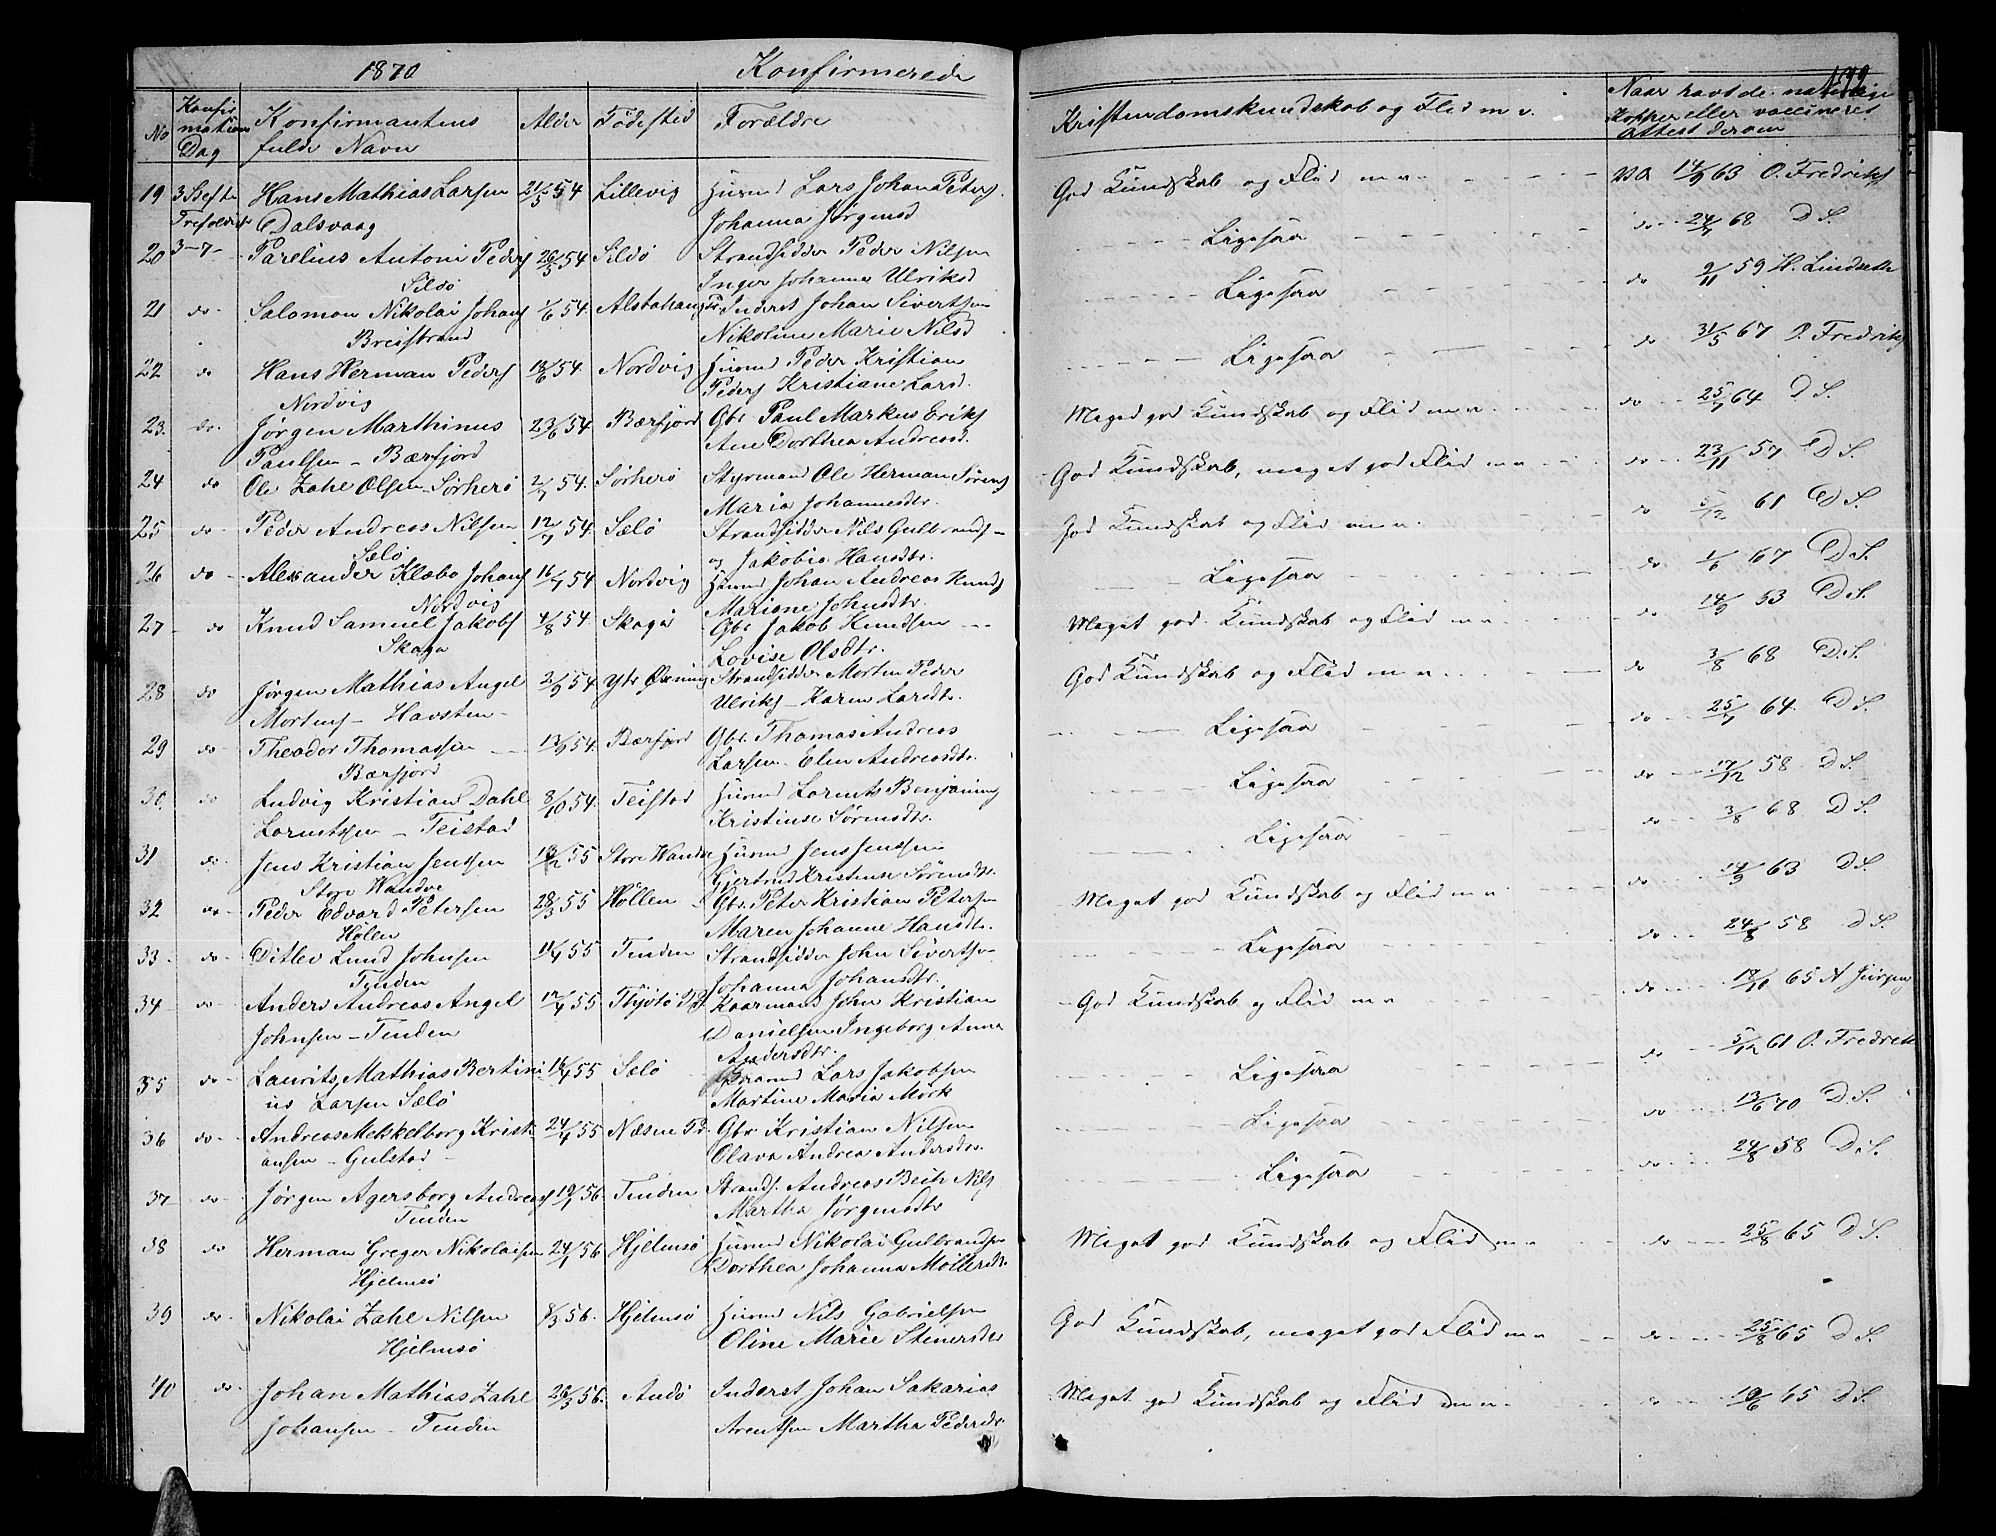 1870
Konfirmerede
199
No
Konfirmations Dag
Konfirmantens fulde Navn
Alder
Fødested
Forældre
Kristendomskundskab og Flid m. v.
Naar havt de naturlige Kopper eller vaccineret Attest derom
19 3 S efter Trefoldigh 3-7- Hans Mathias Larsen 21/5 54 Lillevig Husmd Lars Johan Peters God Kundskab og Flid m v. va 14/9 63 O. Fredriks
Dalsvaag Johanna Jørgensd
20 Parelius Antoni Peders 26/5 54 Sildö Strandsidder Peder Nilsen Ligesaa do 24/7 68 D S.
Sildö Inger Johanna Ulriksd
21 do Salamon Nikolai Johans 1/6 54. Alstahaug Pr. Inderst Johan Sivertsen Ligesaa do 9/11 59 H. Lindseth
Breistrand Nikoline Marie Nilsd
22 do Hans Herman Peders 18/6 54 Nordvig Husmd Peder Kristian Ligesaa do 31/5 67 O. Fredriks
Nordvig Peders Kristiane Larsd.
23. do. Jørgen Marthinus 23/6 54. Bærfjord Gbr Paul Markus Eriks Meged god Kundskab og Flid m v. do 25/7 64 D S.
Paulsen - Bærfjord Ane Dorthea Andreasd.
24 do Ole Zahl Olsen Sørherö 2/7 54. Sørherö Styrmand Ole Herman Sørens God Kundskab, meget god Flid m v do 23/11 57 D S.
Maria Johannesdtr.
25 do Peder Andreas Nilsen 12/7 54. Sælö Strandsidder Nils Gulbrands- God Kundskab og Flid m v. do 5/12 61 D S.
Sælö og Jakobia Hansdtr.
26 do Alexander Klæbo Johans 16/7 54 Nordvig Husmd Johan Andreas Knuds Ligesaa do 1/6 67 D. S.
Nordvig Mariane Johnsdtr.
27 do Knud Samuel Jakobs 4/8 54 Skaga Gbr Jakob Knudsen Meget god Kundskab og Flid m v do 14/9 53 D. S.
Skaga Lovise Olsdtr.
28 do Jørgen Mathias Angel 2/9 54 Ytr Øxning Strandsidder Morten Peder God Kundskab og Flid m v. do 3/8 68 D. S.
Mortens - Havsten- Ulriks - Karen Larsdtr.
29 do Theodor Thomassen 13/9 54. Bærfjord Gbr. Thomas Andreas Ligesaa do 25/7 64. D S.
Bærfjord Larsen - Elen Andreasdtr.
30. do Ludvig Kristian Dahl 8/10 54. Teistad Husmd Lornts Benjamins Ligesaa do 17/12 58 D S.
Lorentzen - Teistad Kristiane Sørensdtr.
31 do Jens Kristian Jenssen 19/2 55 Store Handva Husmd Jens Jenssen Ligesaa do 3/8 68 D S.
Store Handva Gjertrud Kristense Sørensdtr.
32 do Peder Edvard Petersen 28/3 55 Høllen Gbr. Peter Kristian Petersen Meget god Kundskab og Flid m v. do 14/9 63 D S.
Hølen Maren Johanne Hansdtr.
33 do Ditlev Lund Johnsen 11/4 55 Tenden Strandsidder John Sivertsen Ligesaa do 24/8 58 D S.
Tenden Johanna Johansdtr.
34 do Anders Andreas Angel 17/4 55 Thjötö Pr Kaarmand John Kristian God Kundskab og Flid m v do 18/10 65 A Jürgens
Johnsen - Tenden Danielsen Ingeborg Anna
Andersdtr.
35 do Laurits Mathias Bertini 16/4 55 Sælö Lars Jakobsen Ligesaa do 5/12 61 O. Fredrik
us Larsen Sælö Martine Maria Mørk
36 do Andreas Mekkelborg Krist 24/4 55 Næsne Pr. Gbr Kristian Nilsen Ligesaa do 13/6 70 D. S.
ansen - Gulstad Olava Andrea Andersdtr.
37 do Jørgen Agersborg Andreas 19/1 56. Tenden Strands. Andreas Beck Nils Ligesaa do 24/8 58 D. S.
Tenden Martha Jørgensdtr
38 do Herman Greger Nikolaisen 24/1 56. Hjelmsö Husmd Nikolai Gulbrandsen Meget god Kundskab og Flid m v do 25/8 65 D S.
Hjelmsö Dorthea Johanna Møllersdtr.
39 do Nikolai Zahl Nilsen 8/3 56. Hjelmsö Husmd Nils Gabrielsen God Kundskab, meget god Flid m v do 25/8 65 D S.
Hjelmsö Oline Marie Stenersdtr
40 do. Johan Mathias Zahl 26/3 56. Andö Inderst Johan Sakarias Meget god Kundskab og Flid m v. do 19/6 65 D S.
Johansen - Tenden Arentsen Martha Pedersdtr.